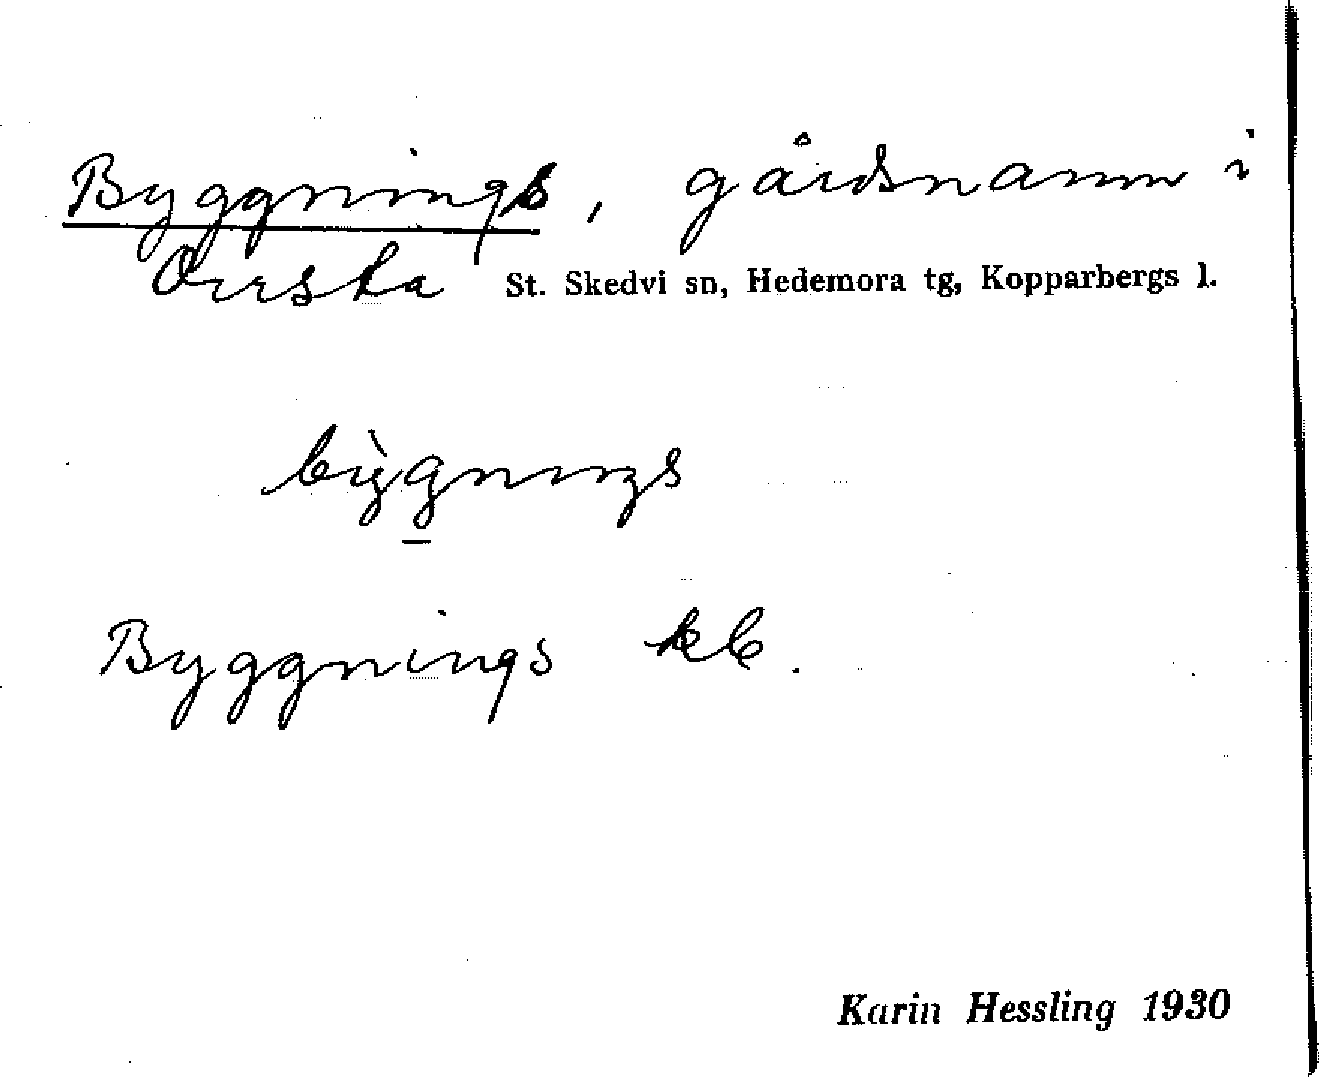 Byggnings, gårdsnamn i
Orrska St. Skedvi sn, Hedemora tg, Kopparbergs l.
bỳgnings
Byggnings kb.
Karin Hessling 1930